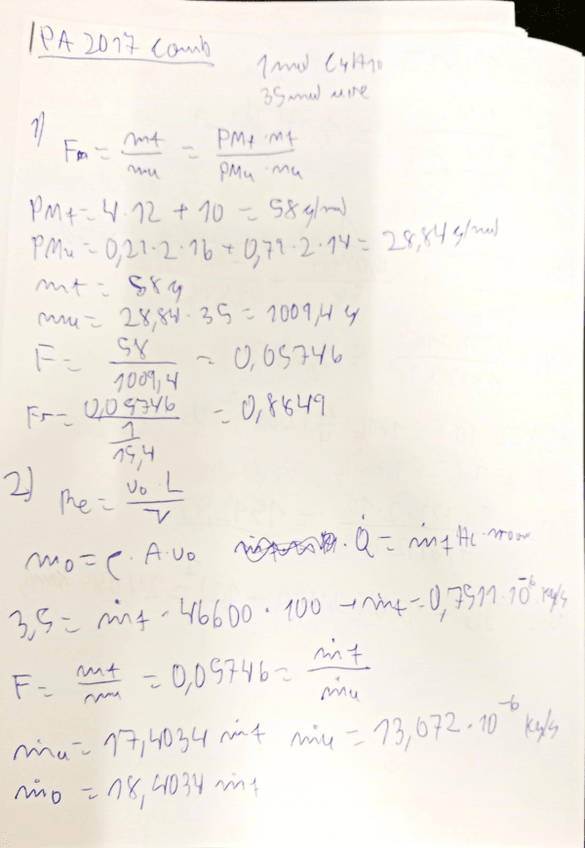 IPA 2017 comb
1 mol C4H10
35 mol aire
1)
Fm = mf / ma = PMf · nf / PMa · na
PMf = 4·12 + 10 = 58 g/mol
PMa = 0,21·2·16 + 0,79·2·14 = 28,84 g/mol
mf = 58g
ma = 28,84·35 = 1009,4 g
F = 58 / 1009,4 = 0,05746
Fr = 0,05746 / (1 / 15,4) = 0,8849
2)
Re = uo·L / ν
mo = ρ·A·uo Q̇ = ṁf Hc ·
3,5 = ṁf · 46600 · 100 → ṁf = 0,7511·10⁻⁶ kg/s
F = mf / ma = 0,05746 = ṁf / ṁa
ṁa = 17,4034 ṁf ṁa = 13,072·10⁻⁶ kg/s
ṁo = 18,4034 ṁf